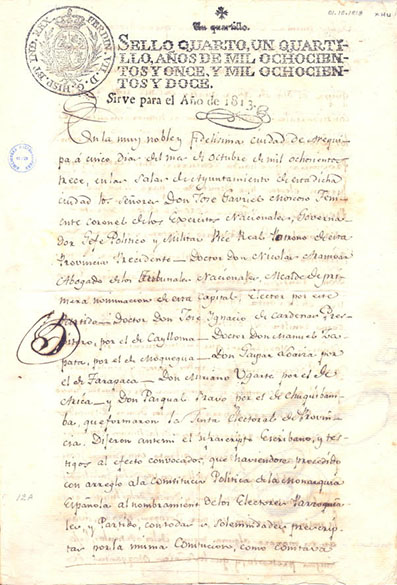 01.10.1813
Un quartillo.
FERDIN. VII. D. G. HISP. ET IND. REX
SELLO QUARTO, UN QUARTI-
LLO, AÑOS DE MIL OCHOCIEN-
TOS Y ONCE, Y MIL OCHOCIEN-
TOS Y DOCE.
Sirve para el Año de 1813.
En la muy noble y fidelisima ciudad de Arequi
pa á cinco dias del mes de Octubre de mil ochocientos
trece, en las Salas de Ayuntamiento de esta dicha
ciudad los Señores Don Jose Gavriel Moscoso Teni
ente coronel de los Exercitos Nacionales, Governa
dor Gefe Politico y Militar Vice Real Patrono de esta
Provincia Presidente = Doctor Don Nicolas
Abogado de los Tribunales Nacionales, Alcalde de pri
mera nominacion de esta Capital, Elector por este
Partido = Doctor Don Jose Ignacio de Cardenas
por el de Caylloma = Doctor Don Manuel
por el de Moquegua = Don Gaspar por
el de Tarapaca = Don Mariano Ugarte por el de
Arica = y Don Pasqual Bravo por el de Chuquibam
ba, que formaron la Junta Electoral de Provin
cia. Dijeron ante mi el infraescripto Escribano, y tes
tigos al efecto convocados, que haviendose precedido
con arreglo a la Constitucion Politica de la Monarquia
Española al nombramiento de los Electores Parroquia
les, y Partido, con todas las solemnidades prescrip
tas por la misma Constitucion, como constava
12A